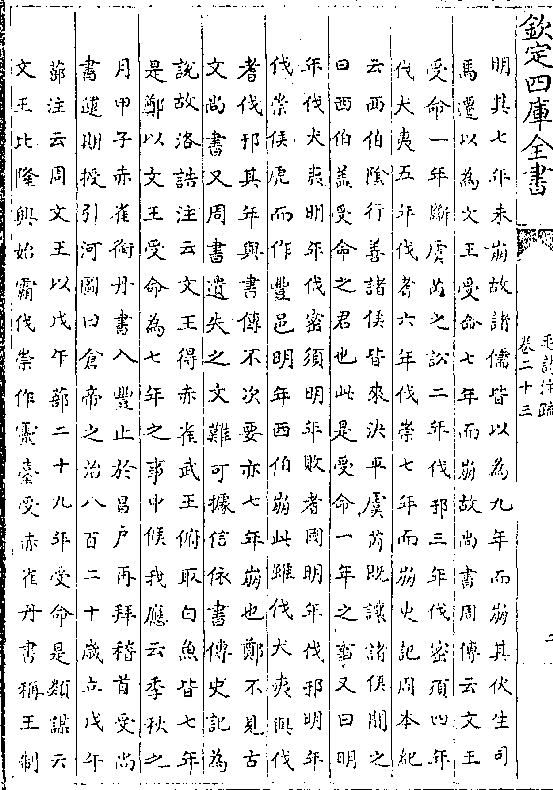 欽定四庫全書
毛詩注疏
卷二十三
二
明其七年未崩故諸儒皆以為九年而崩其伏生司
馬遷以為文王受命七年而崩故尚書周傳云文王
受命一年斷虞芮之訟二年伐邘三年伐密須四年
伐犬夷五年伐耆六年伐崇七年而崩史記周本紀
云西伯陰行善諸侯皆來決平虞芮既讓諸侯聞之
曰西伯蓋受命之君也此是受命一年之事又曰明
年伐犬夷明年伐密須明年敗耆國明年伐邘明年
伐崇侯虎而作豐邑明年西伯崩此雖伐犬夷與伐
耆伐邘其年與書傳不次要亦七年崩也鄭不見古
文尚書又周書遺失之文難可據信依書傳史記為
說故洛誥注云文王得赤雀武王俯取白魚皆七年
是鄭以文王受命為七年之事中候我應云季秋之
月甲子赤雀銜丹書入豐止於昌户再拜稽首受尚
書運期授引河圖曰倉帝之治八百二十歲立戊午
蔀注云周文王以戊午蔀二十九年受命是類謀云
文王比隆興始霸伐崇作靈臺受赤雀丹書稱王制